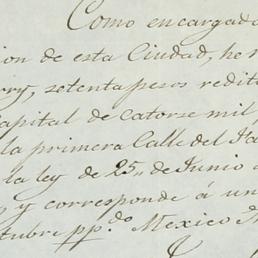 Como encargado
ion de esta Ciudad, he r
rry, setenta pesos redit
capital de catorse mil
la primera Calle del
la ley de 25,, de Junio
y corresponde á un
tubre pp.do Mexico